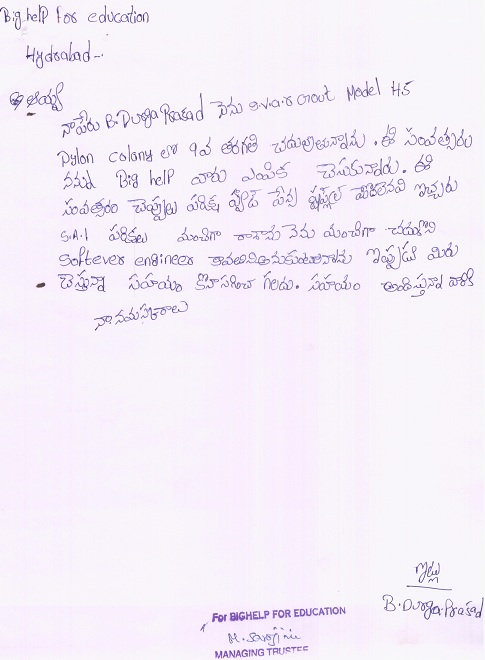 Big help for education
Hydrabad -
అయ్యా
నాపేరు B. Durga Prasad నేను g.v.a.r Model H.S
pylon colony లో 9వ తరగతి చదువుతున్నాను. ఈ సంవత్సరం
నన్ను Big help వారు ఎంపిక చేసుకున్నారు. ఈ
సంవత్సరం చెప్పులు పరిక్ష ప్యాడ్ పెన్ను ఇచ్చారు
S.A.1 పరిక్షలు మంచిగా రాశాను నేను మంచిగా చదువుకొని
Softever engineer కావాలనిఅనుకుంటున్నాను ఇప్పుడు మీరు
చెస్తున్నా సహయం కొనసాగించ గలరు. సహయం అందిస్తున్న వారికి
నా నమస్కారాలు
ఇట్లు
B. Durga Prasad
For BIGHELP FOR EDUCATION
MANAGING TRUSTEE